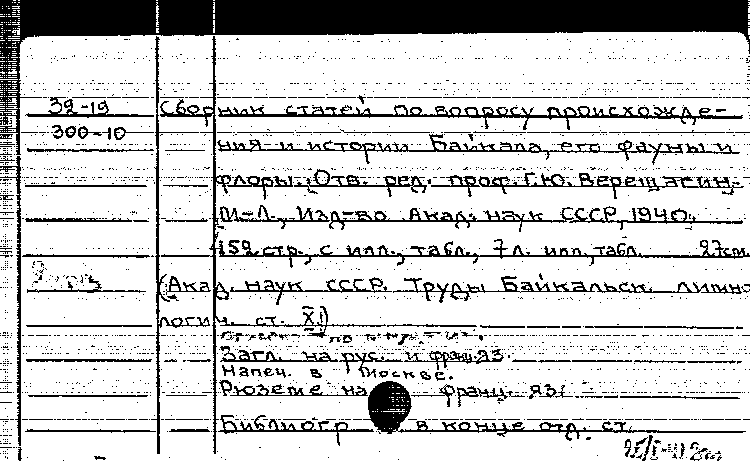 39-19 Сборник статей по вопросу происхожде-
300-10 ния и истории Байкала, его фауны и
флоры. Отв. ред. проф. Г.Ю. Верещагин.
М-Л., Изд-во Акад. наук СССР, 1940.
152 стр., с илл., табл., 7 л. илл., табл. 27см.
(Акад. наук СССР. Труды Байкальск. лимно-
логич. ст. XI)
Загл. на рус. и франц. яз.
Напеч. в Москве.
Рюземе на франц. яз.
Библиогр в конце отд. ст.